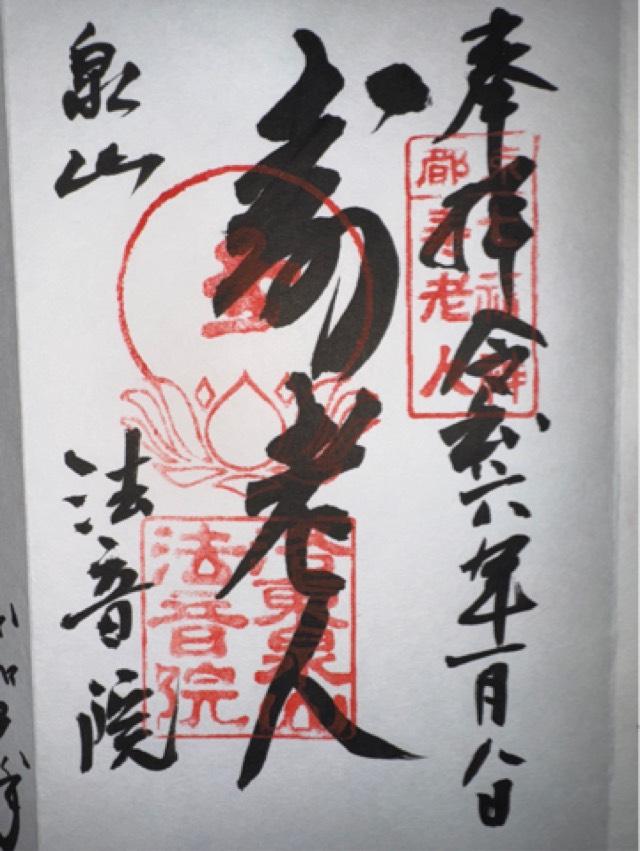 奉拝 令和六年一月八日
京七福神
都寿老人
寿老人
洛東泉山
法音院
泉山 法音院